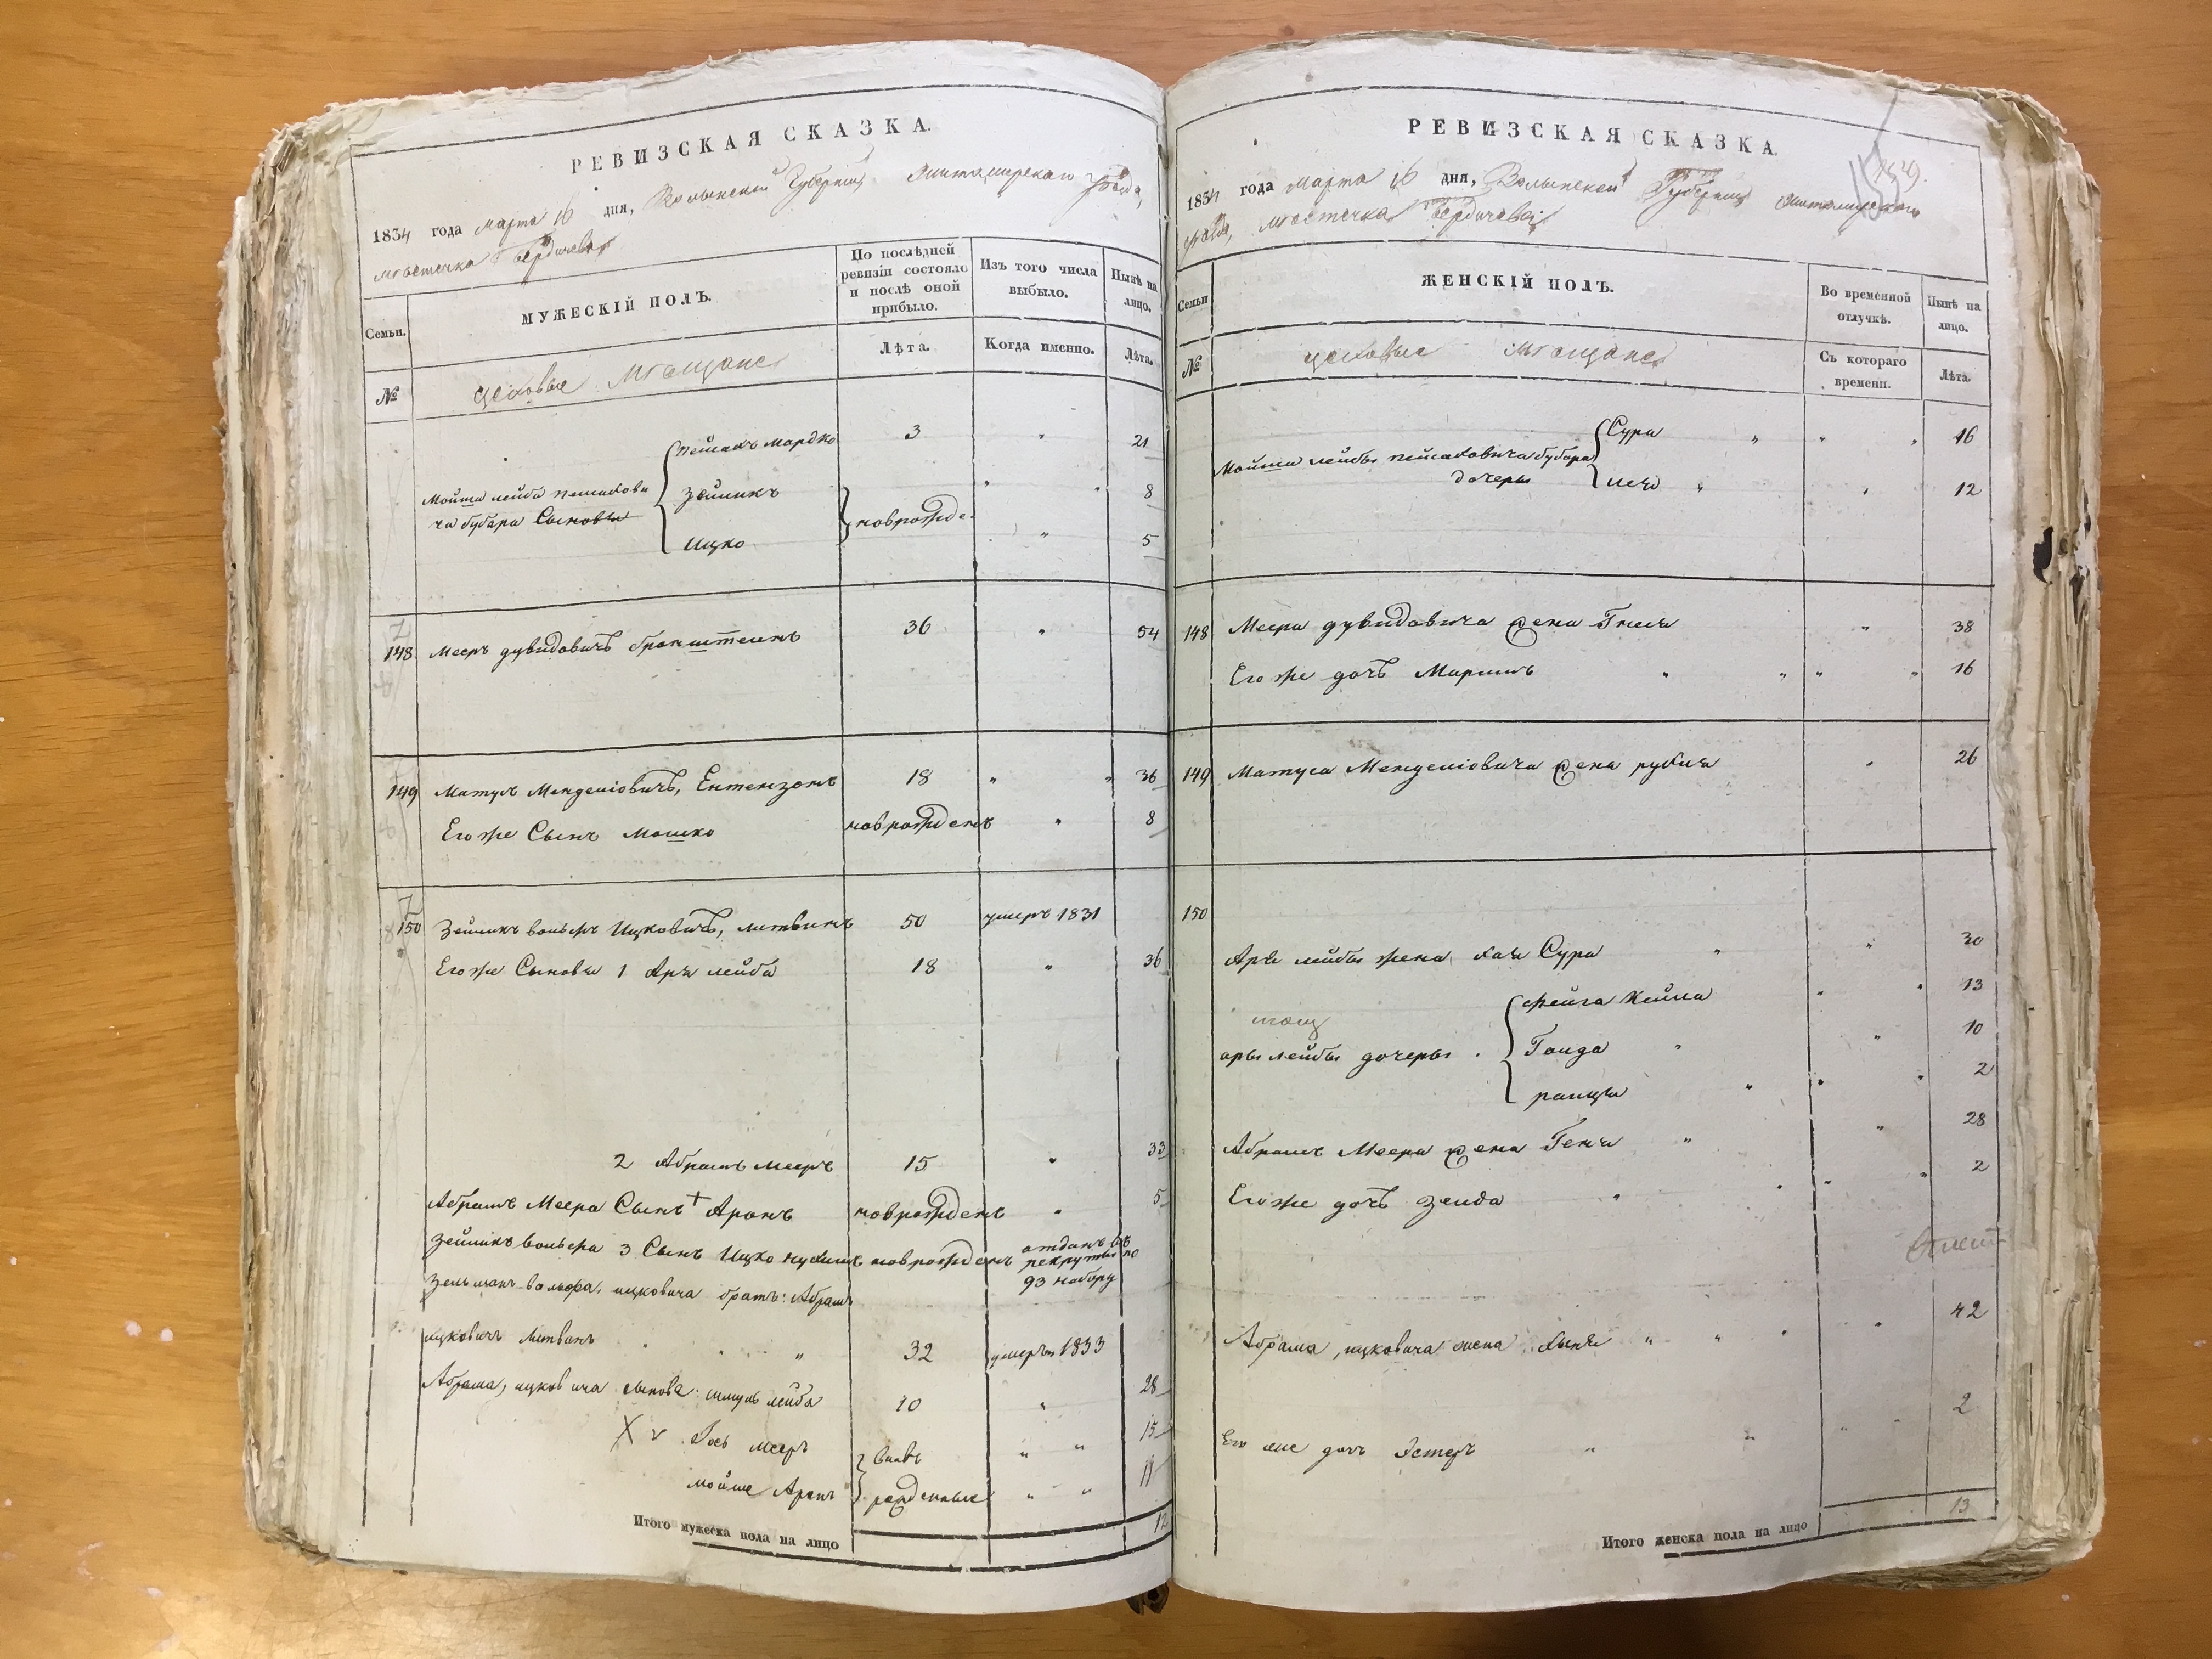 РЕВИЗСКАЯ СКАЗКА.
1834 года марта 16 дня, Волынской Губерніи Житомирскаго уѣзда,
мѣстечка Бердичева
Семьи.
МУЖЕСКІЙ ПОЛЪ.
По послѣдней ревизіи состояло и послѣ оной прибыло.
Изъ того числа выбыло.
Нынѣ на лицо.
№
цеховые Мѣщане
Лѣта.
Когда именно.
Лѣта.
Пейсахъ Мордко 3 " 21
Мойша лейба пейсахови
ча бубара Сыновья
Зейликъ " " 8
новрожде.
Ицко " 5
148 Мееръ дувидовичъ бронштеинъ 36 " 54
149 Матусъ Менделіовичъ, Ентензонъ 18 " " 36
Его же Сынъ Мошко новрожденъ " 8
150 Зейликъ вольфъ Ицковичъ, литвинъ 50 умеръ 1831
Его же Сыновья 1 Арья лейба 18 " 36
2 Абрамъ мееръ 15 " 33
Абрамъ Меера Сынъ Аронъ новрожденъ " 5
Зейликъ вольфа 3 Сынъ Ицко нухимъ новрожденъ отданъ въ рекруты по 93 набору
Зельман вольфа, ицковича братъ: Абрамъ
ицковичъ литвинъ " 32 умеръ 1833
Абрама, ицковича сынова: шмуль лейба 10 " 28
X Іось мееръ " " 15
вновь
мойше Аронъ рожденные " " 11
Итого мужеска пола на лицо 12
РЕВИЗСКАЯ СКАЗКА
1834 года марта 16 дня, Волынской Губерніи Житомирскаго
уѣзда, мѣстечка Бердичева
Семьи
ЖЕНСКІЙ ПОЛЪ.
Во временной отлучкѣ.
Нынѣ на лицо.
№
цеховые мѣщане
Съ котораго времени.
Лѣта.
Сура " " " 16
Мойша лейбы пейсаховича бубара
дочеры
" " 12
148 Меера дувидовича жена Гнеся " 38
Его же дочь Мариемъ " " " " 16
149 Матуса Менделіовича жена рухля " 26
150
Арья лейбы жена хая Сура " " 30
Фейга Кейла " " 13
арьи лейбы дочеры
Голда " " 10
" " " 2
Абрамъ Меера жена Геня " " 28
Его же дочь Зелда " " " " 2
Абрама, ицковича жена хыня " " " " 42
Его же дочь Эстеръ " " " " 2
Итого женска пола на лицо 13